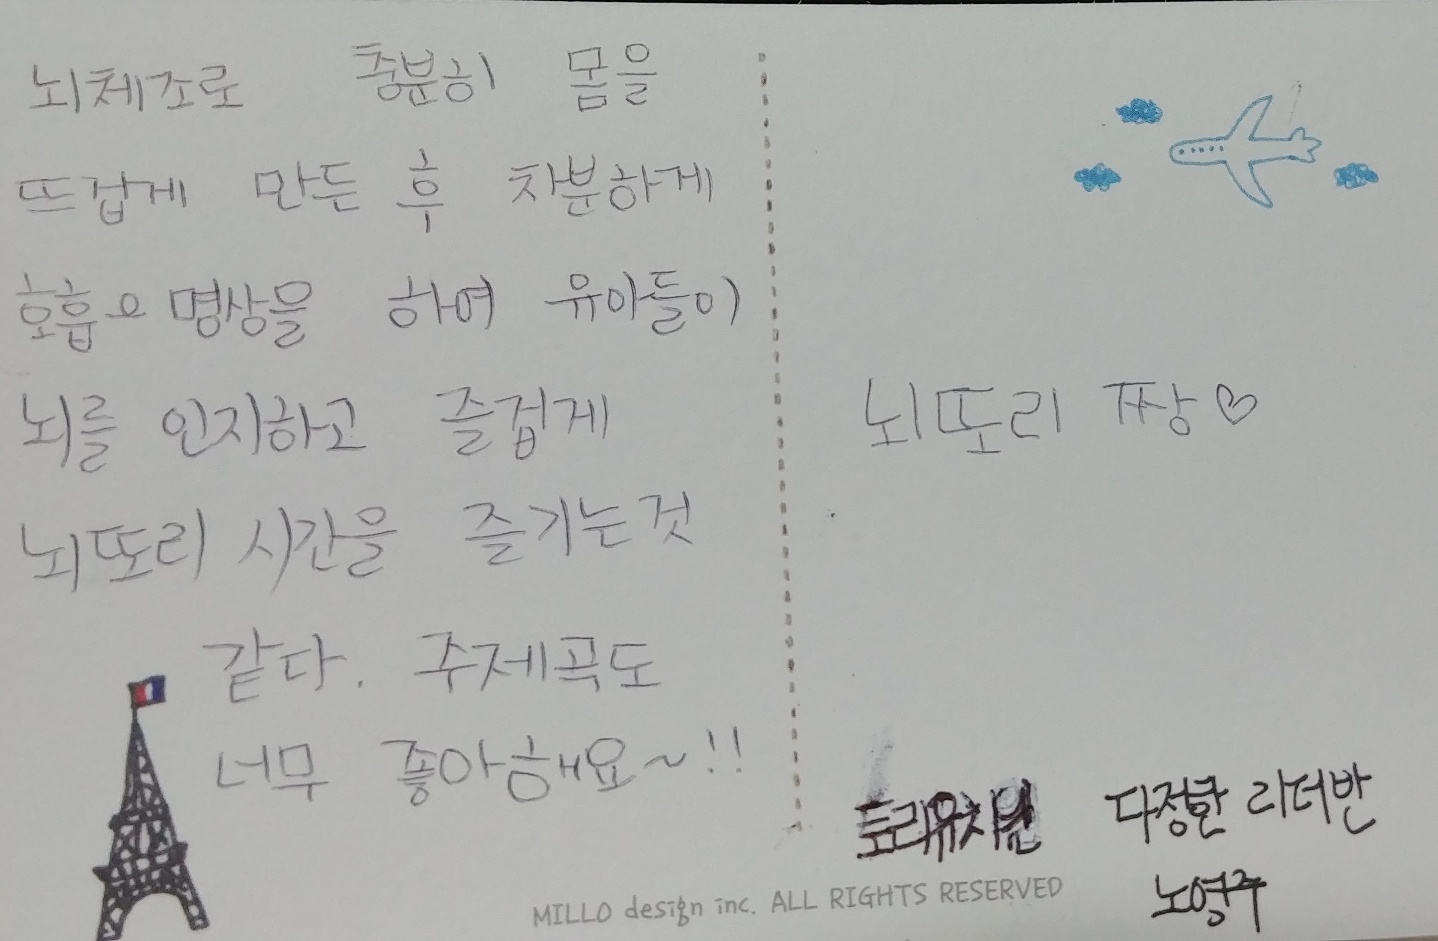 뇌체조로 충분히 몸을
뜨겁게 만든 후 차분하게
호흡으 명상을 하여 유아들이
뇌를 인지하고 즐겁게
뇌또리 시간을 즐기는것
같다. 주제곡도
너무 좋아해요~!!
뇌또리 짱♡
토리유치원 다정한 리더반
노영주
MILLO design inc. ALL RIGHTS RESERVED